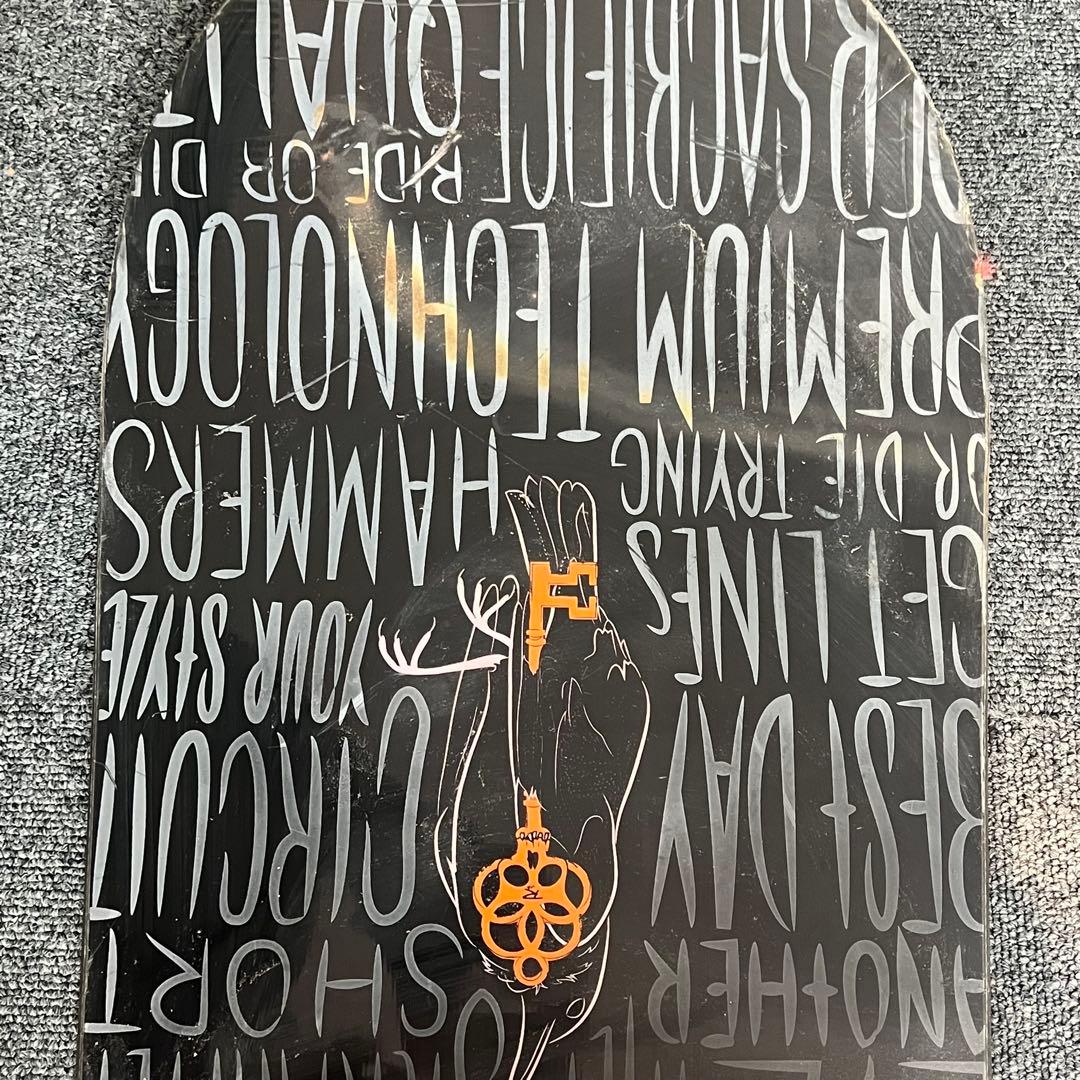 ANOTHER SHORT
BEST DAY CIRCUIT
YOUR STYLE
GET LINES HAMMERS
OR DIE TRYING
PREMIUM TECHNOLOGY
RIDE OR DIE
SACRIFICE